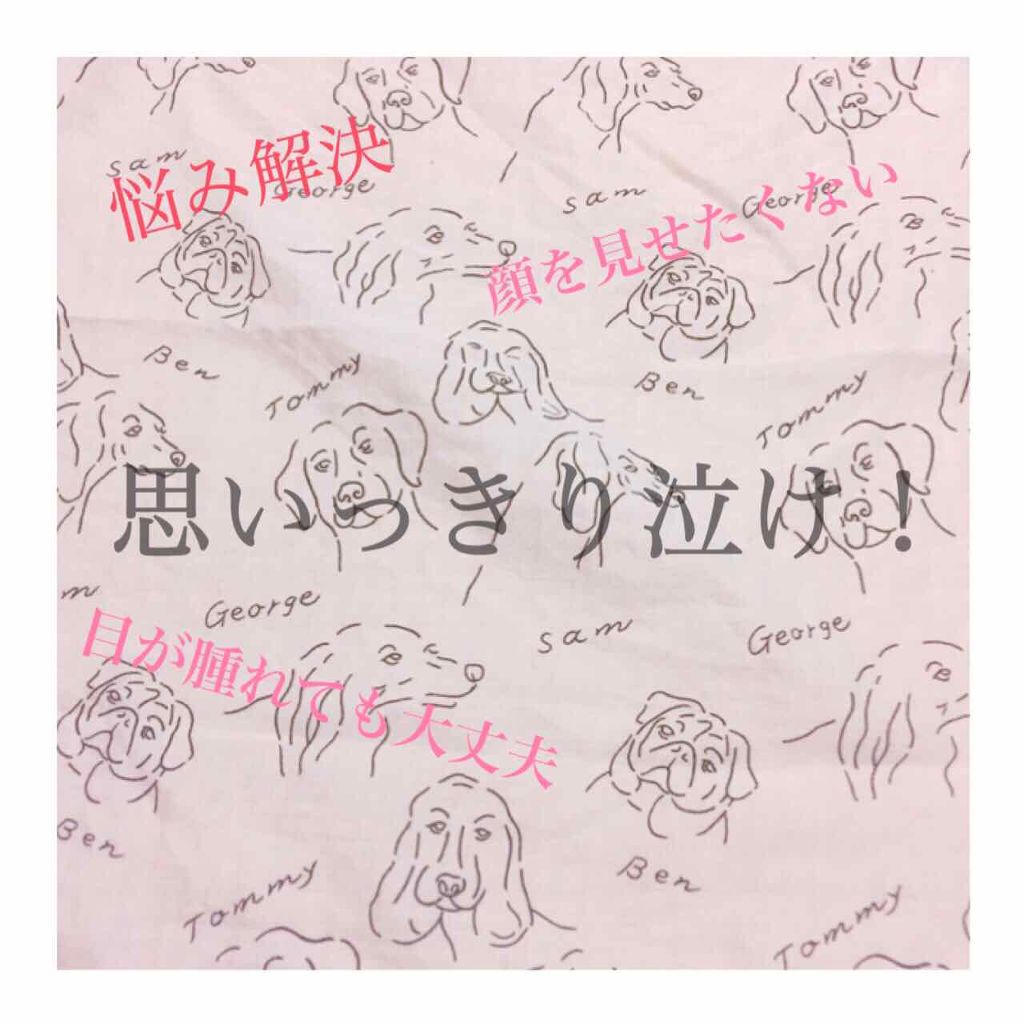 sam
悩み解決
George
sam
George
顔を見せたくない
Ben
Tommy
Ben
Tommy
思いっきり泣け！
m
George
sam
George
目が腫れても大丈夫
Ben
Tommy
Ben
Tommy